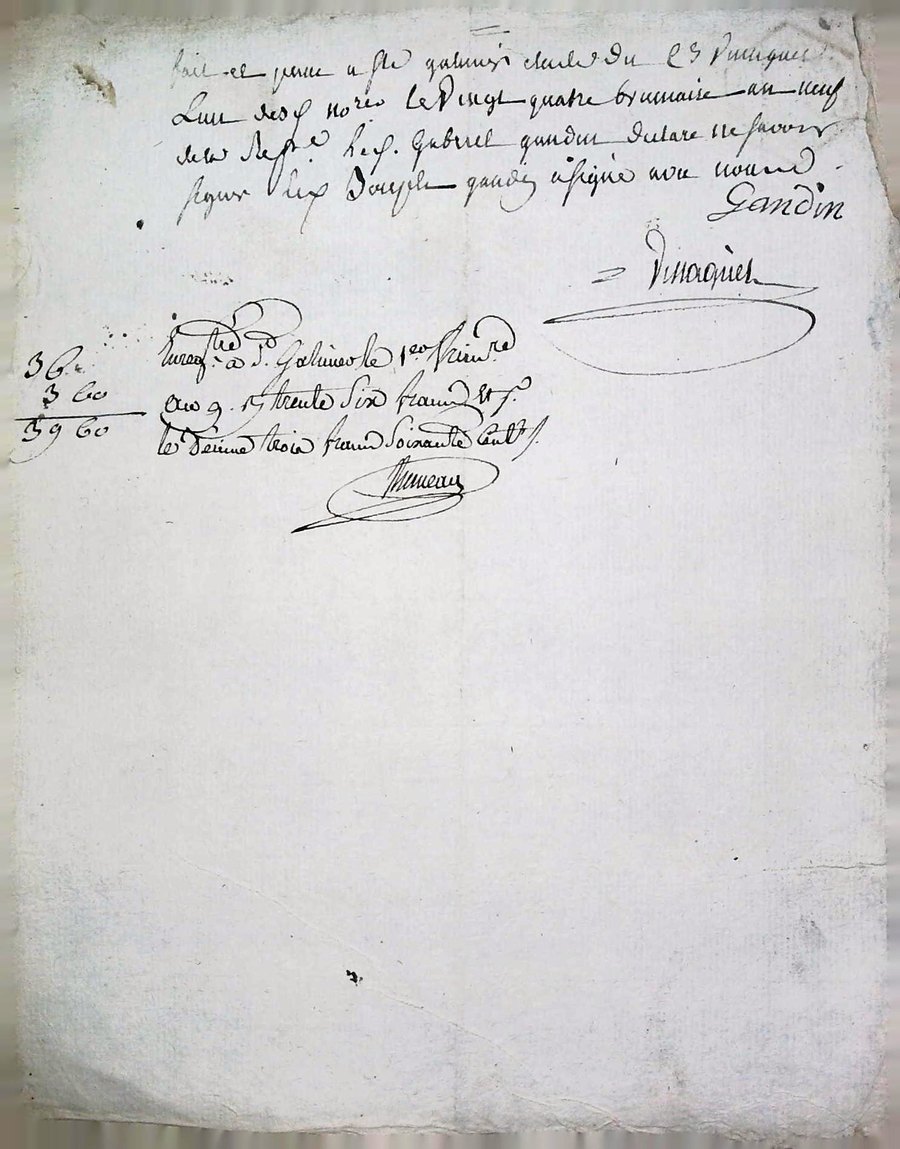 fait et passé a St galmier etude du C.
L'un desd. nores le Vingt quatre brumaire an neuf
de la Repe. Led. Gabriel gandin declare ne savoir
signer led. Joseph gandin a signé avec nous
Gandin
36.
3 60
39 60
Enregtré à St. Galmier le 1er frimre
an 9. rç trente Six francs et pr.
le Décime trois francs Soixante Centes